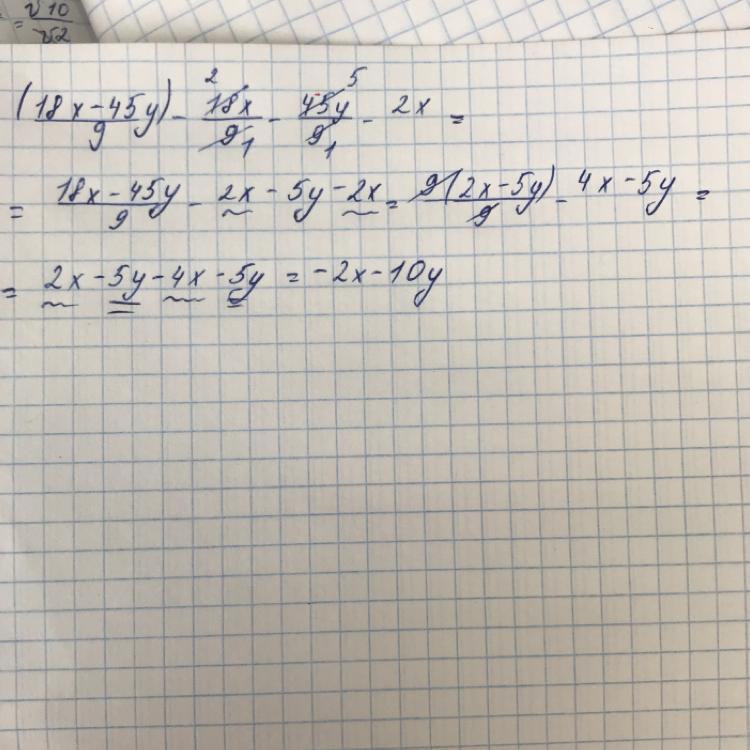 = √10/√2
(18x-45y)/9 - 18x/9 - 45y/9 - 2x =
2 1 5 1
= 18x-45y/9 - 2x - 5y - 2x = 9(2x-5y)/9 - 4x - 5y =
= 2x - 5y - 4x - 5y = -2x - 10y